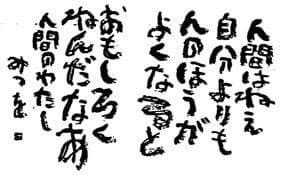 人間はねえ
自分よりも
人のほうが
よくなると
おもしろく
ねえんだなあ
人間のわたし
みつを